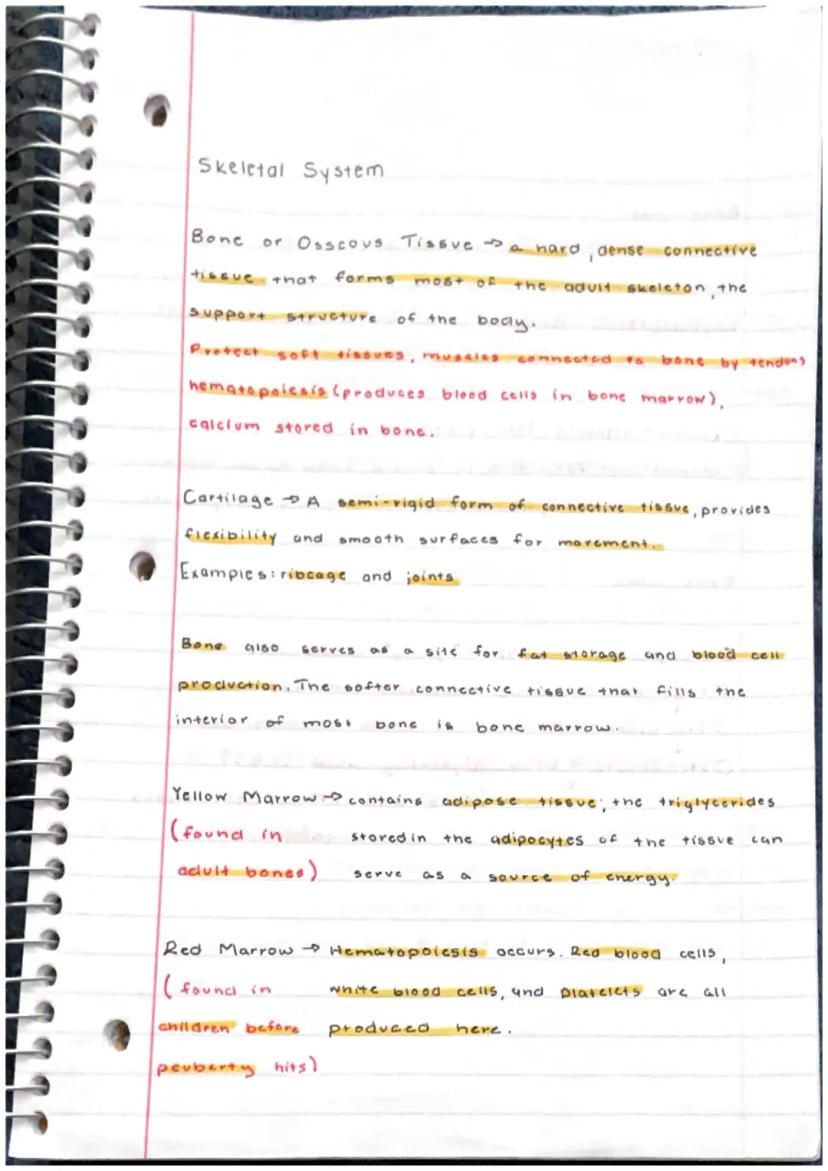 Skeletal System
Bone or Osscous Tissue → a hard, dense connective
tissue that forms most of the adult skeleton, the
support structure of the body.
Protect soft tissues, muscles connected to bone by tendons
hematopoiesis (produces blood cells in bone marrow),
calcium stored in bone.
Cartilage → A semi-rigid form of connective tissue, provides
flexibility and smooth surfaces for movement.
Examples: ribcage and joints
Bone also serves as a site for fat storage and blood cell
production. The softer connective tissue that fills the
interior of most bone is bone marrow.
Yellow Marrow → contains adipose tissue; the triglycerides
(found in stored in the adipocytes of the tissue can
adult bones) serve as a source of energy.
Red Marrow → Hematopoiesis occurs. Red blood cells,
(found in white blood cells, and platelets are all
children before produced here.
peuberty hits)